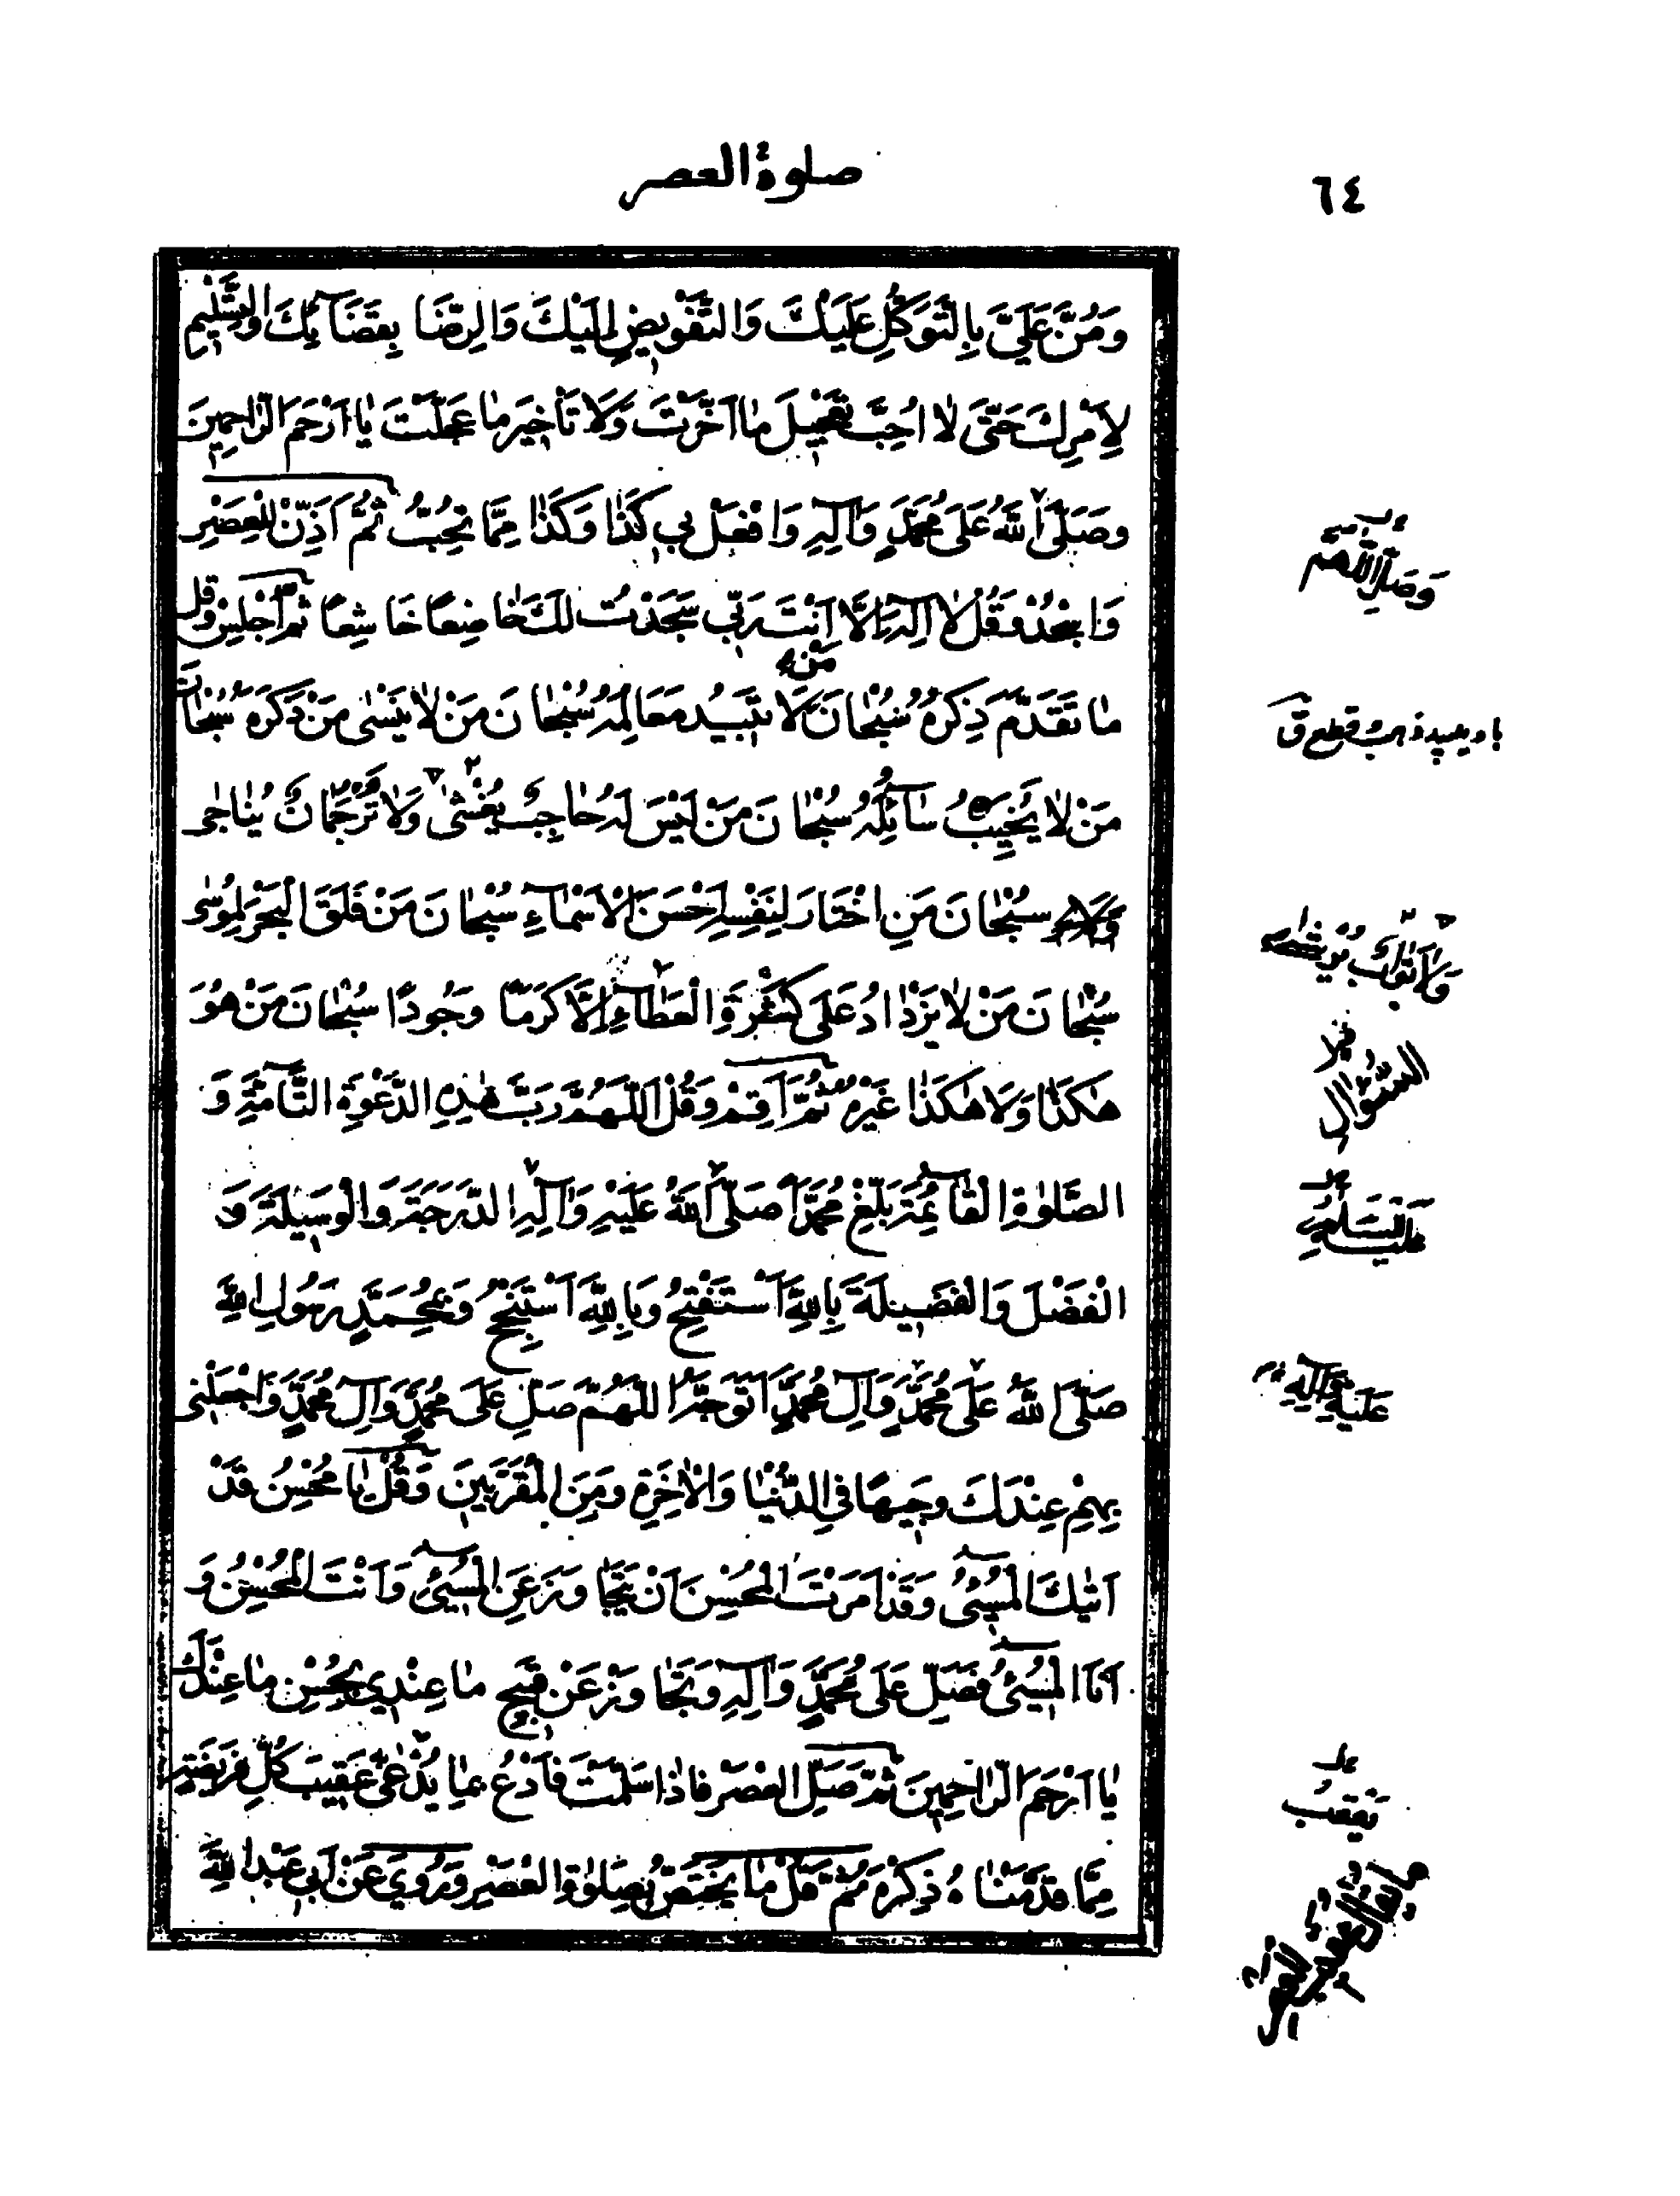 ٦٤
صلوة العصر
وَمُنَّ عَلَيَّ بِالتَّوَكُّلِ عَلَيْكَ وَالتَّفْوِيضِ اِلَيْكَ وَالرِّضَا بِقَضَائِكَ وَالتَّسْلِيمِ
لِاَمْرِكَ حَتّٰى لا اُحِبَّ تَعْجِيلَ مٰا اَخَّرْتَ وَلاٰ تَأْخِيرَ مٰا عَجَّلْتَ يٰا اَرْحَمَ الرّٰاحِمِينَ
وصَلَّى اللهُ عَلىٰ مُحَمَّدٍ وَاٰلِهِ وَافْعَلْ بِي كَذٰا وَكَذٰا مِمّا تُحِبُّ ثُمَّ اَذِّنْ لِلْعَصْرِ
وَاسْجُدْ وَقُلْ لاٰ اِلٰهَ اِلاّٰ اَنْتَ رَبِّي سَجَدْتُ لَكَ خاضِعاً خَاشِعاً ثُمَّ اجْلِسْ وَقُل
مٰا تَقَدَّمَ ذِكْرُهُ سُبْحٰانَ مَنْ لاٰ تَبِيدُ مَعٰالِمُهُ سُبْحٰانَ مَنْ لاٰ يَنْسٰى مَنْ ذَكَرَهُ سُبْحٰانَ
مَنْ لاٰ يُخَيِّبُ سٰائِلَهُ سُبْحٰانَ مَنْ لَيْسَ لَهُ حٰاجِبٌ يُغْشىٰ وَلاٰ تَرْجُمٰانٌ يُنٰاجٰى
سُبْحٰانَ مَنِ اخْتَارَ لِنَفْسِهِ اَحْسَنَ الْاَسْمٰاءِ سُبْحٰانَ مَنْ فَلَقَ الْبَحْرَ لِمُوسٰى
سُبْحٰانَ مَنْ لاٰ يَزْدٰادُ عَلىٰ كَثْرَةِ الْعَطٰاءِ اِلاّٰ كَرَماً وَجُوداً سُبْحٰانَ مَنْ هُوَ
هٰكَذٰا وَلاٰ هٰكَذٰا غَيْرُهُ ثُمَّ اَقِمْ وَقُلْ اَللّٰهُمَّ رَبَّ هٰذِهِ الدَّعْوَةِ التّٰامَّةِ وَ
الصَّلوٰةِ الْقٰائِمَةِ بَلِّغْ مُحَمَّداً صَلَّى اللهُ عَلَيْهِ وَاٰلِهِ الدَّرَجَةَ وَالْوَسِيلَةَ وَ
الْفَضْلَ وَالْفَضِيلَةَ بِاللهِ اَسْتَفْتِحُ وَبِاللهِ اَسْتَنْجِحُ وَبِمُحَمَّدٍ رَسُولِ اللهِ
صَلَّى اللهُ عَلىٰ مُحَمَّدٍ وَاٰلِ مُحَمَّدٍ اَتَوَجَّهُ اَللّٰهُمَّ صَلِّ عَلىٰ مُحَمَّدٍ وَاٰلِ مُحَمَّدٍ وَاجْعَلْنِي
بِهِمْ عِنْدَكَ وَجِيهاً فِي الدُّنْيٰا وَالْاٰخِرَةِ وَمِنَ الْمُقَرَّبِينَ وَقُلْ يٰا مُحْسِنُ قَدْ
اَتٰيكَ الْمُسِيئُ وَقَدْ اَمَرْتَ الْمُحْسِنَ اَنْ يَتَجٰاوَزَ عَنِ الْمُسِيئِ وَاَنْتَ الْمُحْسِنُ وَ
اَنَا الْمُسِيئُ فَصَلِّ عَلىٰ مُحَمَّدٍ وَاٰلِهِ وَتَجٰاوَزْ عَنْ قَبِيحِ مٰا عِنْدِي بِحُسْنِ مٰا عِنْدَكَ
يٰا اَرْحَمَ الرّٰاحِمِينَ ثُمَّ صَلِّ الْعَصْرَ فَاِذٰا سَلَّمْتَ فَادْعُ بِمٰا يُدْعىٰ عَقِيبَ كُلِّ فَرِيضَةٍ
مِمّٰا قَدَّمْنٰا ذِكْرَهُ ثُمَّ قُلْ مٰا يَخْتَصُّ بِصَلوٰةِ الْعَصْرِ وَرُوِيَ عَنْ اَبِي عَبْدِ اللهِ
وَصَلِّ اللّٰهُمَّ
السُّؤٰالِ
عَلَيْهِ السَّلامُ
عَلَيْهِ وَاٰلِهِ